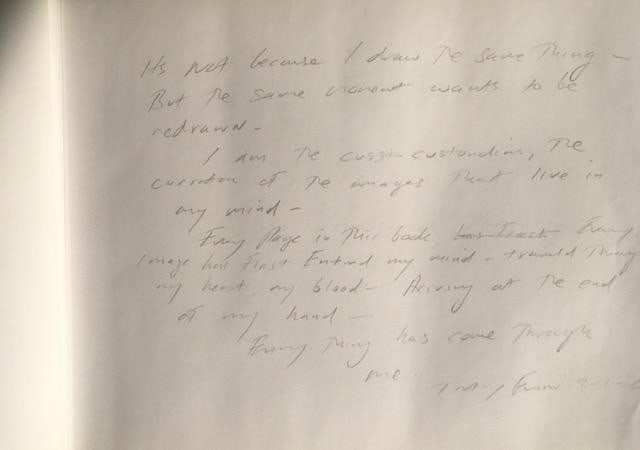 Its not because I draw the same thing –
But the same moment wants to be
redrawn –
I am the cust custondian, the
currator of the images that live in
my mind –
Every Page in this book, has First Every
Image has First Entered my mind – traveled Through
my heart, my blood – Ariving at the end
of my hand –
Every Thing has come Through
me.